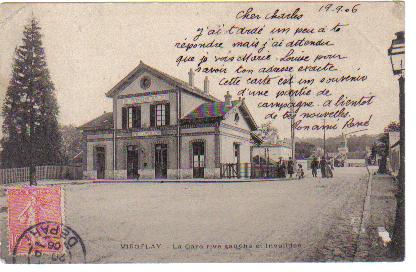 19.9.06
Cher Charles
j'ai tardé un peu à te
répondre mais j'ai attendu
que je vois Marie-Louise pour
savoir ton adresse exacte
Cette carte est un souvenir
d'une partie de
campagne. a bientot
de tes nouvelles.
Ton ami René
VIROFLAY - La Gare rive gauche et Invalides